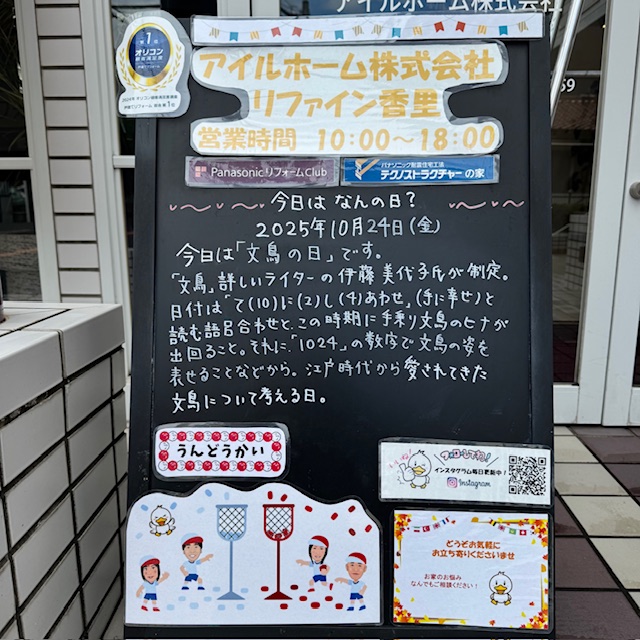 アイルホーム株式会社
第1位
オリコン
顧客満足度
アイルホーム株式会社
リファイン香里
営業時間 10:00～18:00
59
Panasonic リフォームClub
パナソニック耐震住宅工法
テクノストラクチャーの家
今日は なんの日？
2025年10月24日(金)
今日は「文鳥の日」です。
「文鳥」詳しいライターの伊藤美代子氏が制定。
日付は「て(10)に(2)し(4)あわせ。(手に幸せ)と
読む語呂合わせと、この時期に手乗り文鳥のヒナが
出回ること。それに「1024」の数字で文鳥の姿を
表せることなどから。江戸時代から愛されてきた
文鳥について考える日。
うんどうかい
フォローしてね！
インスタグラム毎日更新中！
Instagram
どうぞお気軽に
お立ち寄りくださいませ
お家のお悩み
なんでもご相談ください！